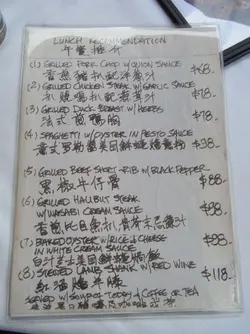 LUNCH RECOMMENDATION
午餐推介
(1) GRILLED PORK CHOP W/ONION SAUCE $68-
香煎豬扒配洋蔥汁
(2) GRILLED CHICKEN STEAK W/GARLIC SAUCE $78-
扒雞扒配蒜茸汁
(3) GRILLED DUCK BREAST W/HERBS $78-
法式煎鴨胸
(4) SPAGHETTI W/OYSTER IN PESTO SAUCE $78-
(5) GRILLED BEEF SHORT-RIB W/BLACK PEPPER $88-
黑椒牛仔骨
(6) GRILLED HALIBUT STEAK W/WASABI CREAM SAUCE $98-
(7) BAKED OYSTER W/RICE & CHEESE IN WHITE CREAM SAUCE $98-
(8) STEWED LAMB SHANK W/RED WINE $118-
SERVED W/SOUP OF TODAY & COFFEE OR TEA